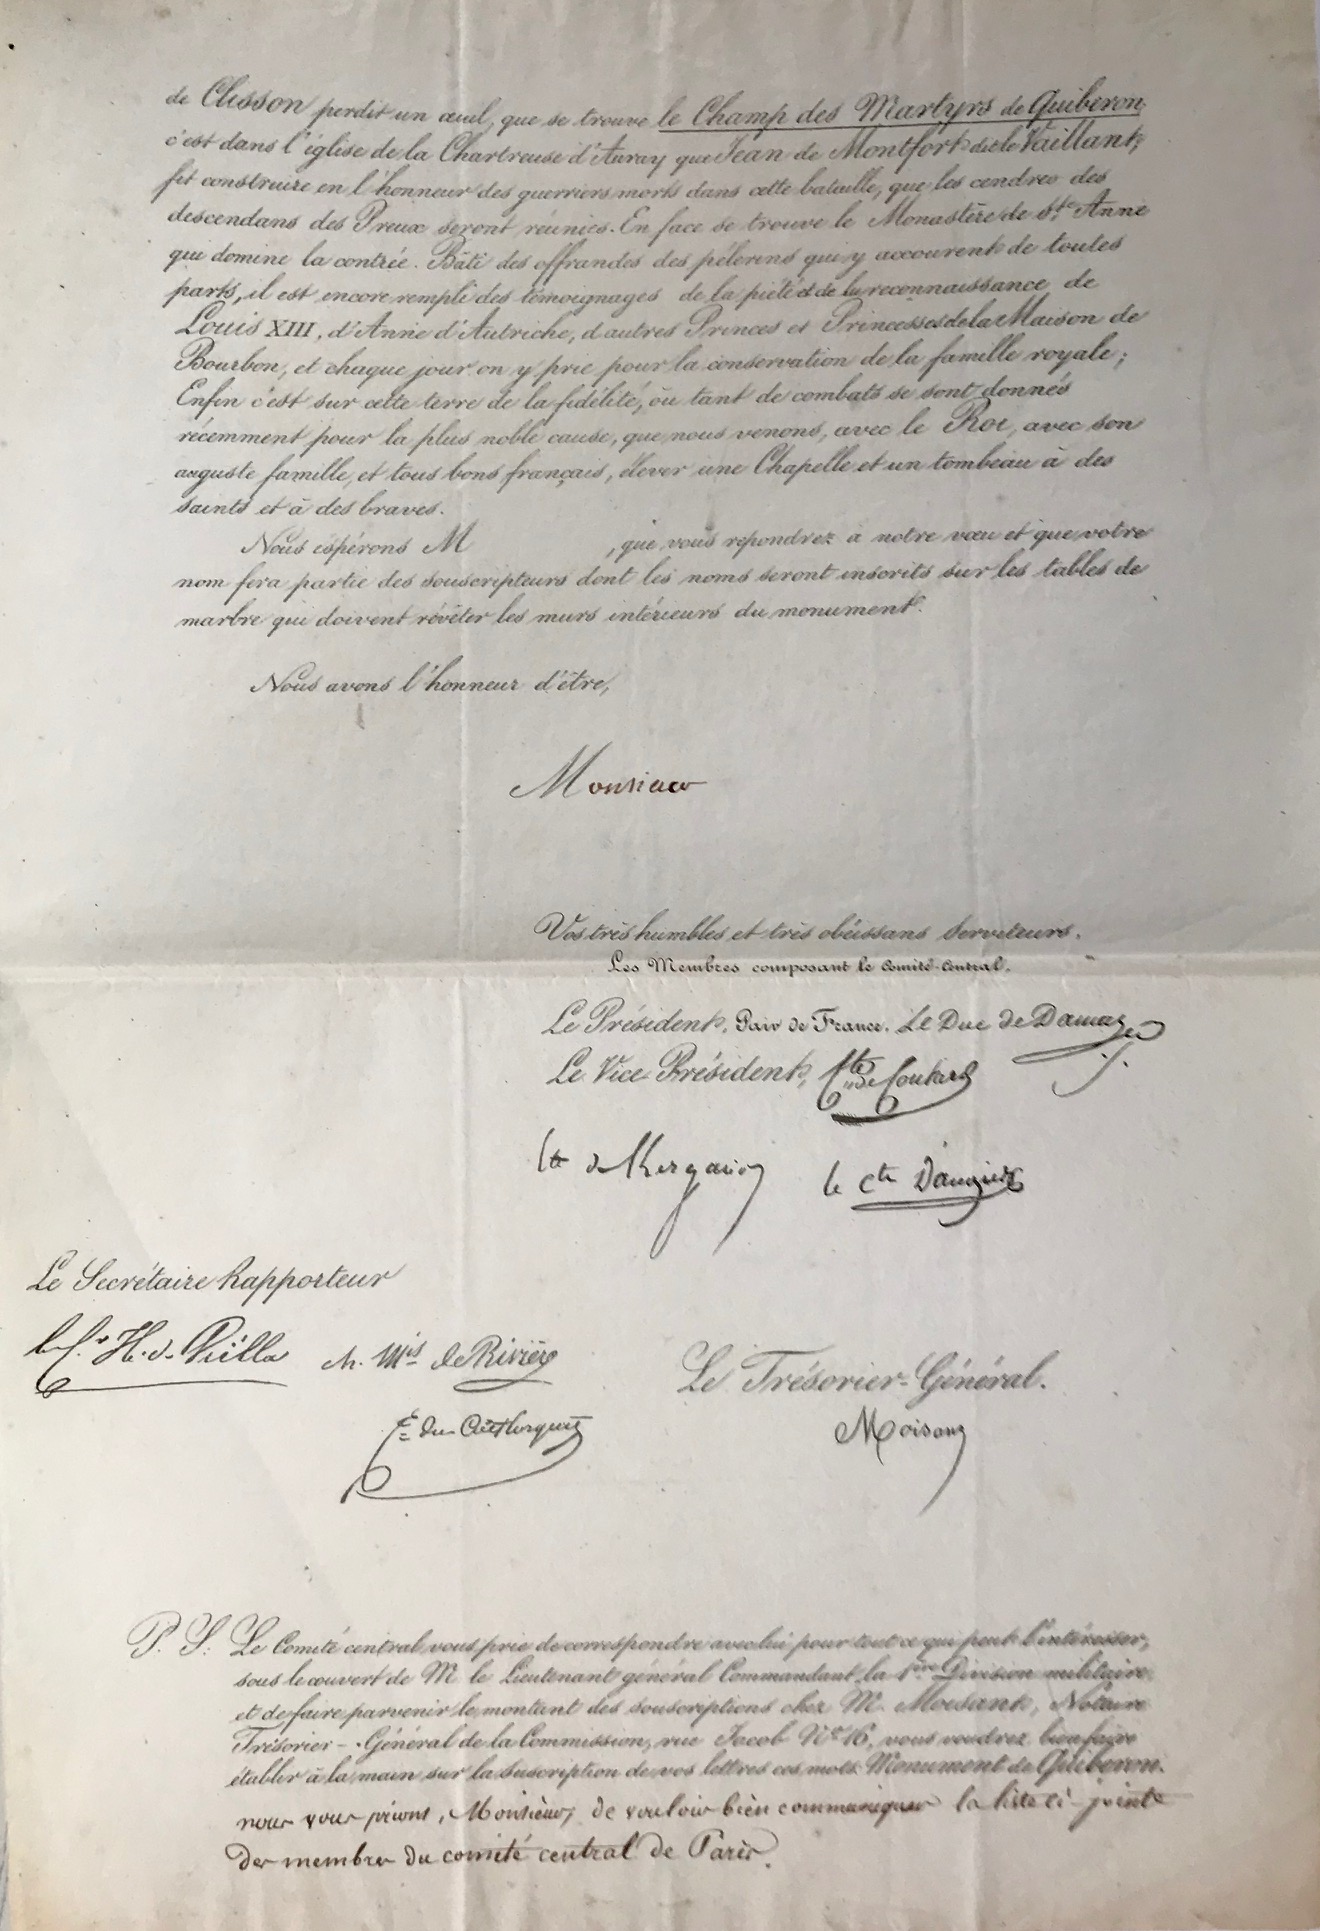 de Clisson perdit un œuil, que se trouve le Champ des Martyrs de Quiberon,
c'est dans l'église de la Chartreuse d'Auray que Jean de Montfort dit le Vaillant,
fit construire en l'honneur des guerriers morts dans cette bataille, que les cendres des
descendans des Preux seront réunies. En face se trouve le Monastère de Ste Anne
qui domine la contrée. Bâti des offrandes des pélerins qui y accourent de toutes
parts, il est encore rempli des témoignages de la piété et de la reconnaissance de
Louis XIII, d'Anne d'Autriche, d'autres Princes et Princesses de la Maison de
Bourbon, et chaque jour on y prie pour la conservation de la famille royale;
Enfin c'est sur cette terre de la fidélité, où tant de combats se sont donnés
récemment pour la plus noble cause, que nous venons, avec le Roi, avec son
auguste famille, et tous bons français, élever une Chapelle et un tombeau à des
saints et à des braves.
Nous espérons M , que vous repondrez à notre vœu et que votre
nom fera partie des souscripteurs dont les noms seront inscrits sur les tables de
marbre qui doivent révêter les murs intérieurs du monument.
Nous avons l'honneur d'être,
Monsieur
Vos très humbles et très obéissans Serviteurs.
Les Membres composant le Comité-Central.
Le Président, Pair de France, Le Duc de Damas
Le Vice Président, Cte de Coutard
Cte de Kergariou le Cte Daugier
Le Secrétaire Rapporteur
le Cr H. de Viella ch. Mis de Rivière
Le Trésorier-Général.
Cte du Coëtlosquet
Moisant
P. S. Le Comité central vous prie de correspondre avec lui pour tout ce qui peut l'intéresser,
sous le couvert de M. le Lieutenant général Commandant la 1ère Division militaire
et de faire parvenir le montant des souscriptions chez M. Moisant, Notaire
Trésorier-Général de la Commission, rue Jacob No 16, vous voudrez bien faire
établir à la main sur la suscription de vos lettres ces mots Monument de Quiberon.
nous vous prions, Monsieur, de vouloir bien communiquer la liste ci-jointe
des membres du comité central de Paris.